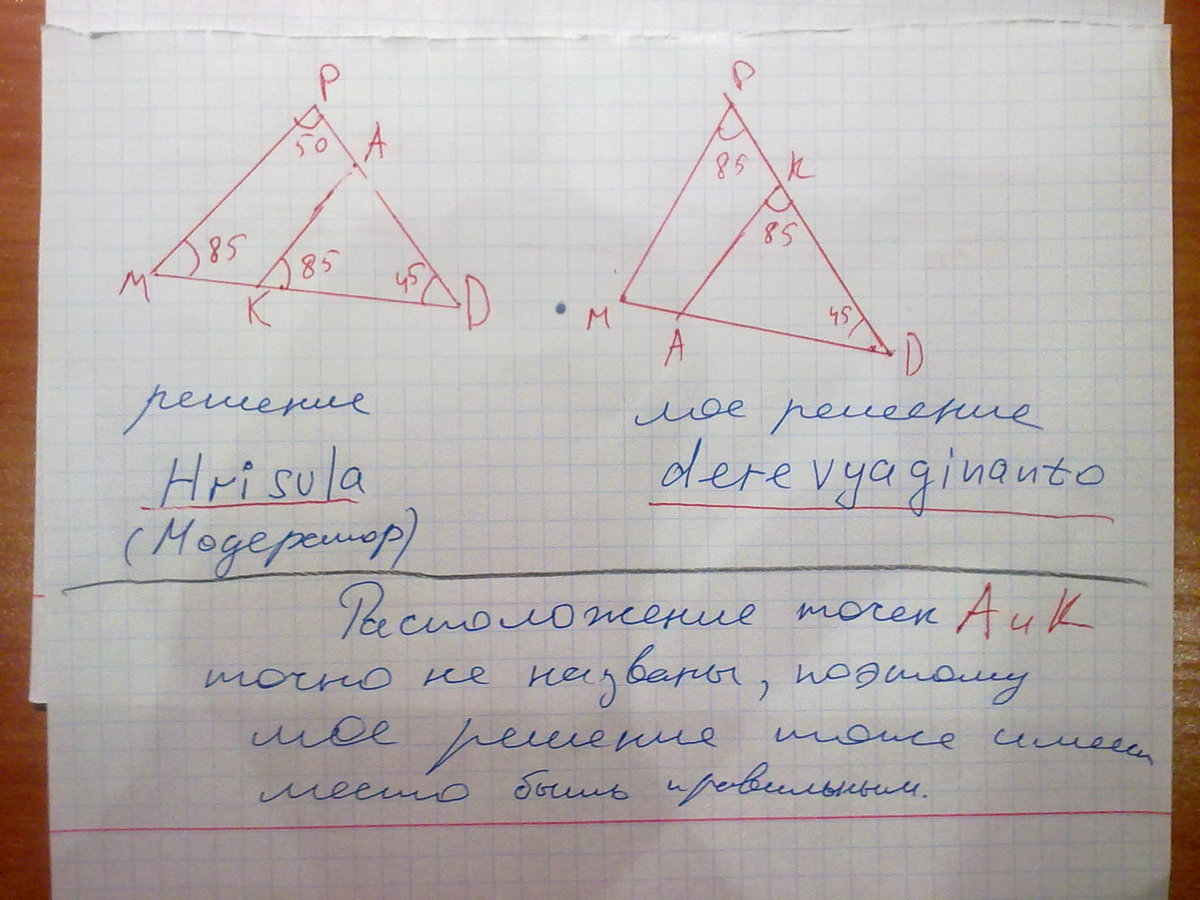 P
50
A
M
85
K
85
45
D
P
85
K
85
M
A
45
D
решение
Hrisula
(Модератор)
мое решение
derevyaginanto
Расположение точек А и К
точно не названы, поэтому
мое решение тоже имеет
место быть правильным.